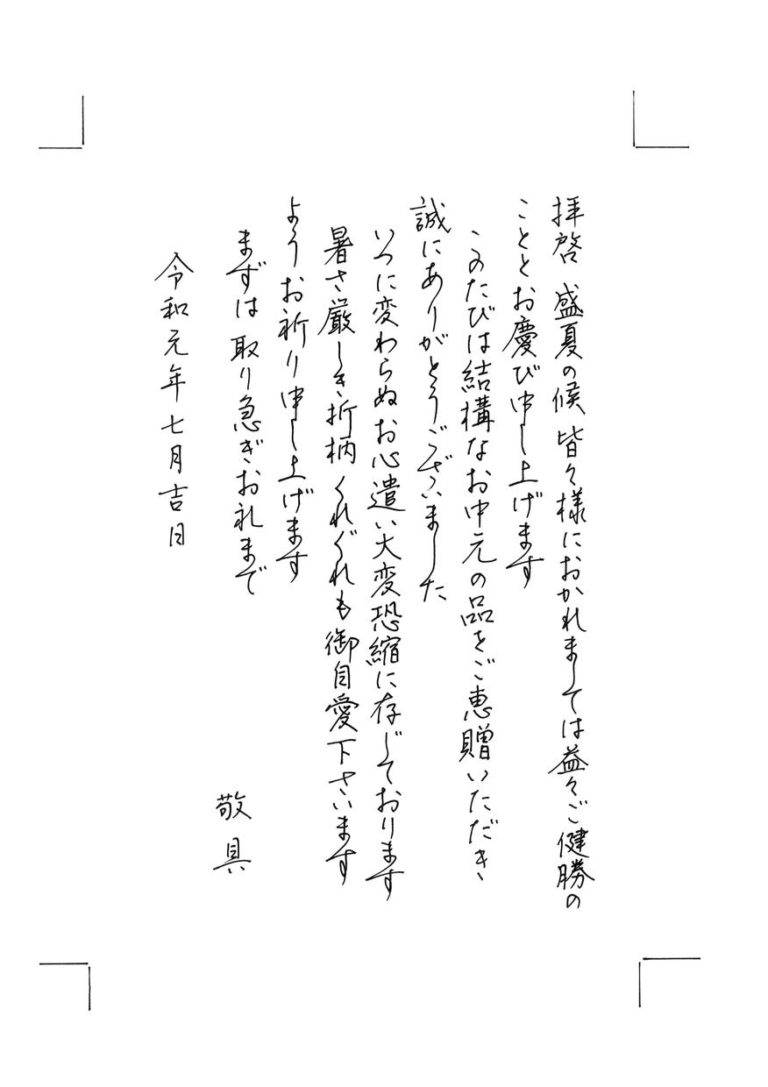 拝啓 盛夏の候 皆々様におかれましては益々ご健勝の
こととお慶び申し上げます
このたびは結構なお中元の品をご恵贈いただき
誠にありがとうございました
いつに変わらぬお心遣い大変恐縮に存じております
暑さ厳しき折柄 くれぐれも御自愛下さいます
ようお祈り申し上げます
まずは取り急ぎお礼まで
敬具
令和元年七月吉日